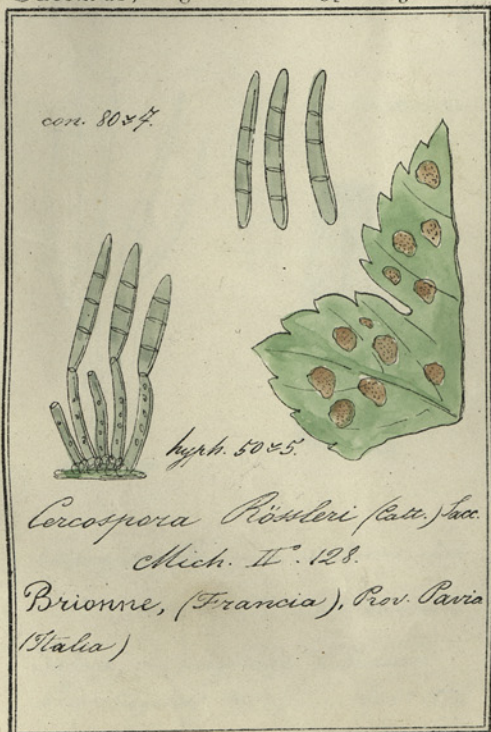 con. 80≈7.
hyph. 50≈5.
Cercospora Rösleri (Catt.) Sacc.
Mich. II. 128.
Brionne, (Francia), Prov. Pavia
(Italia)